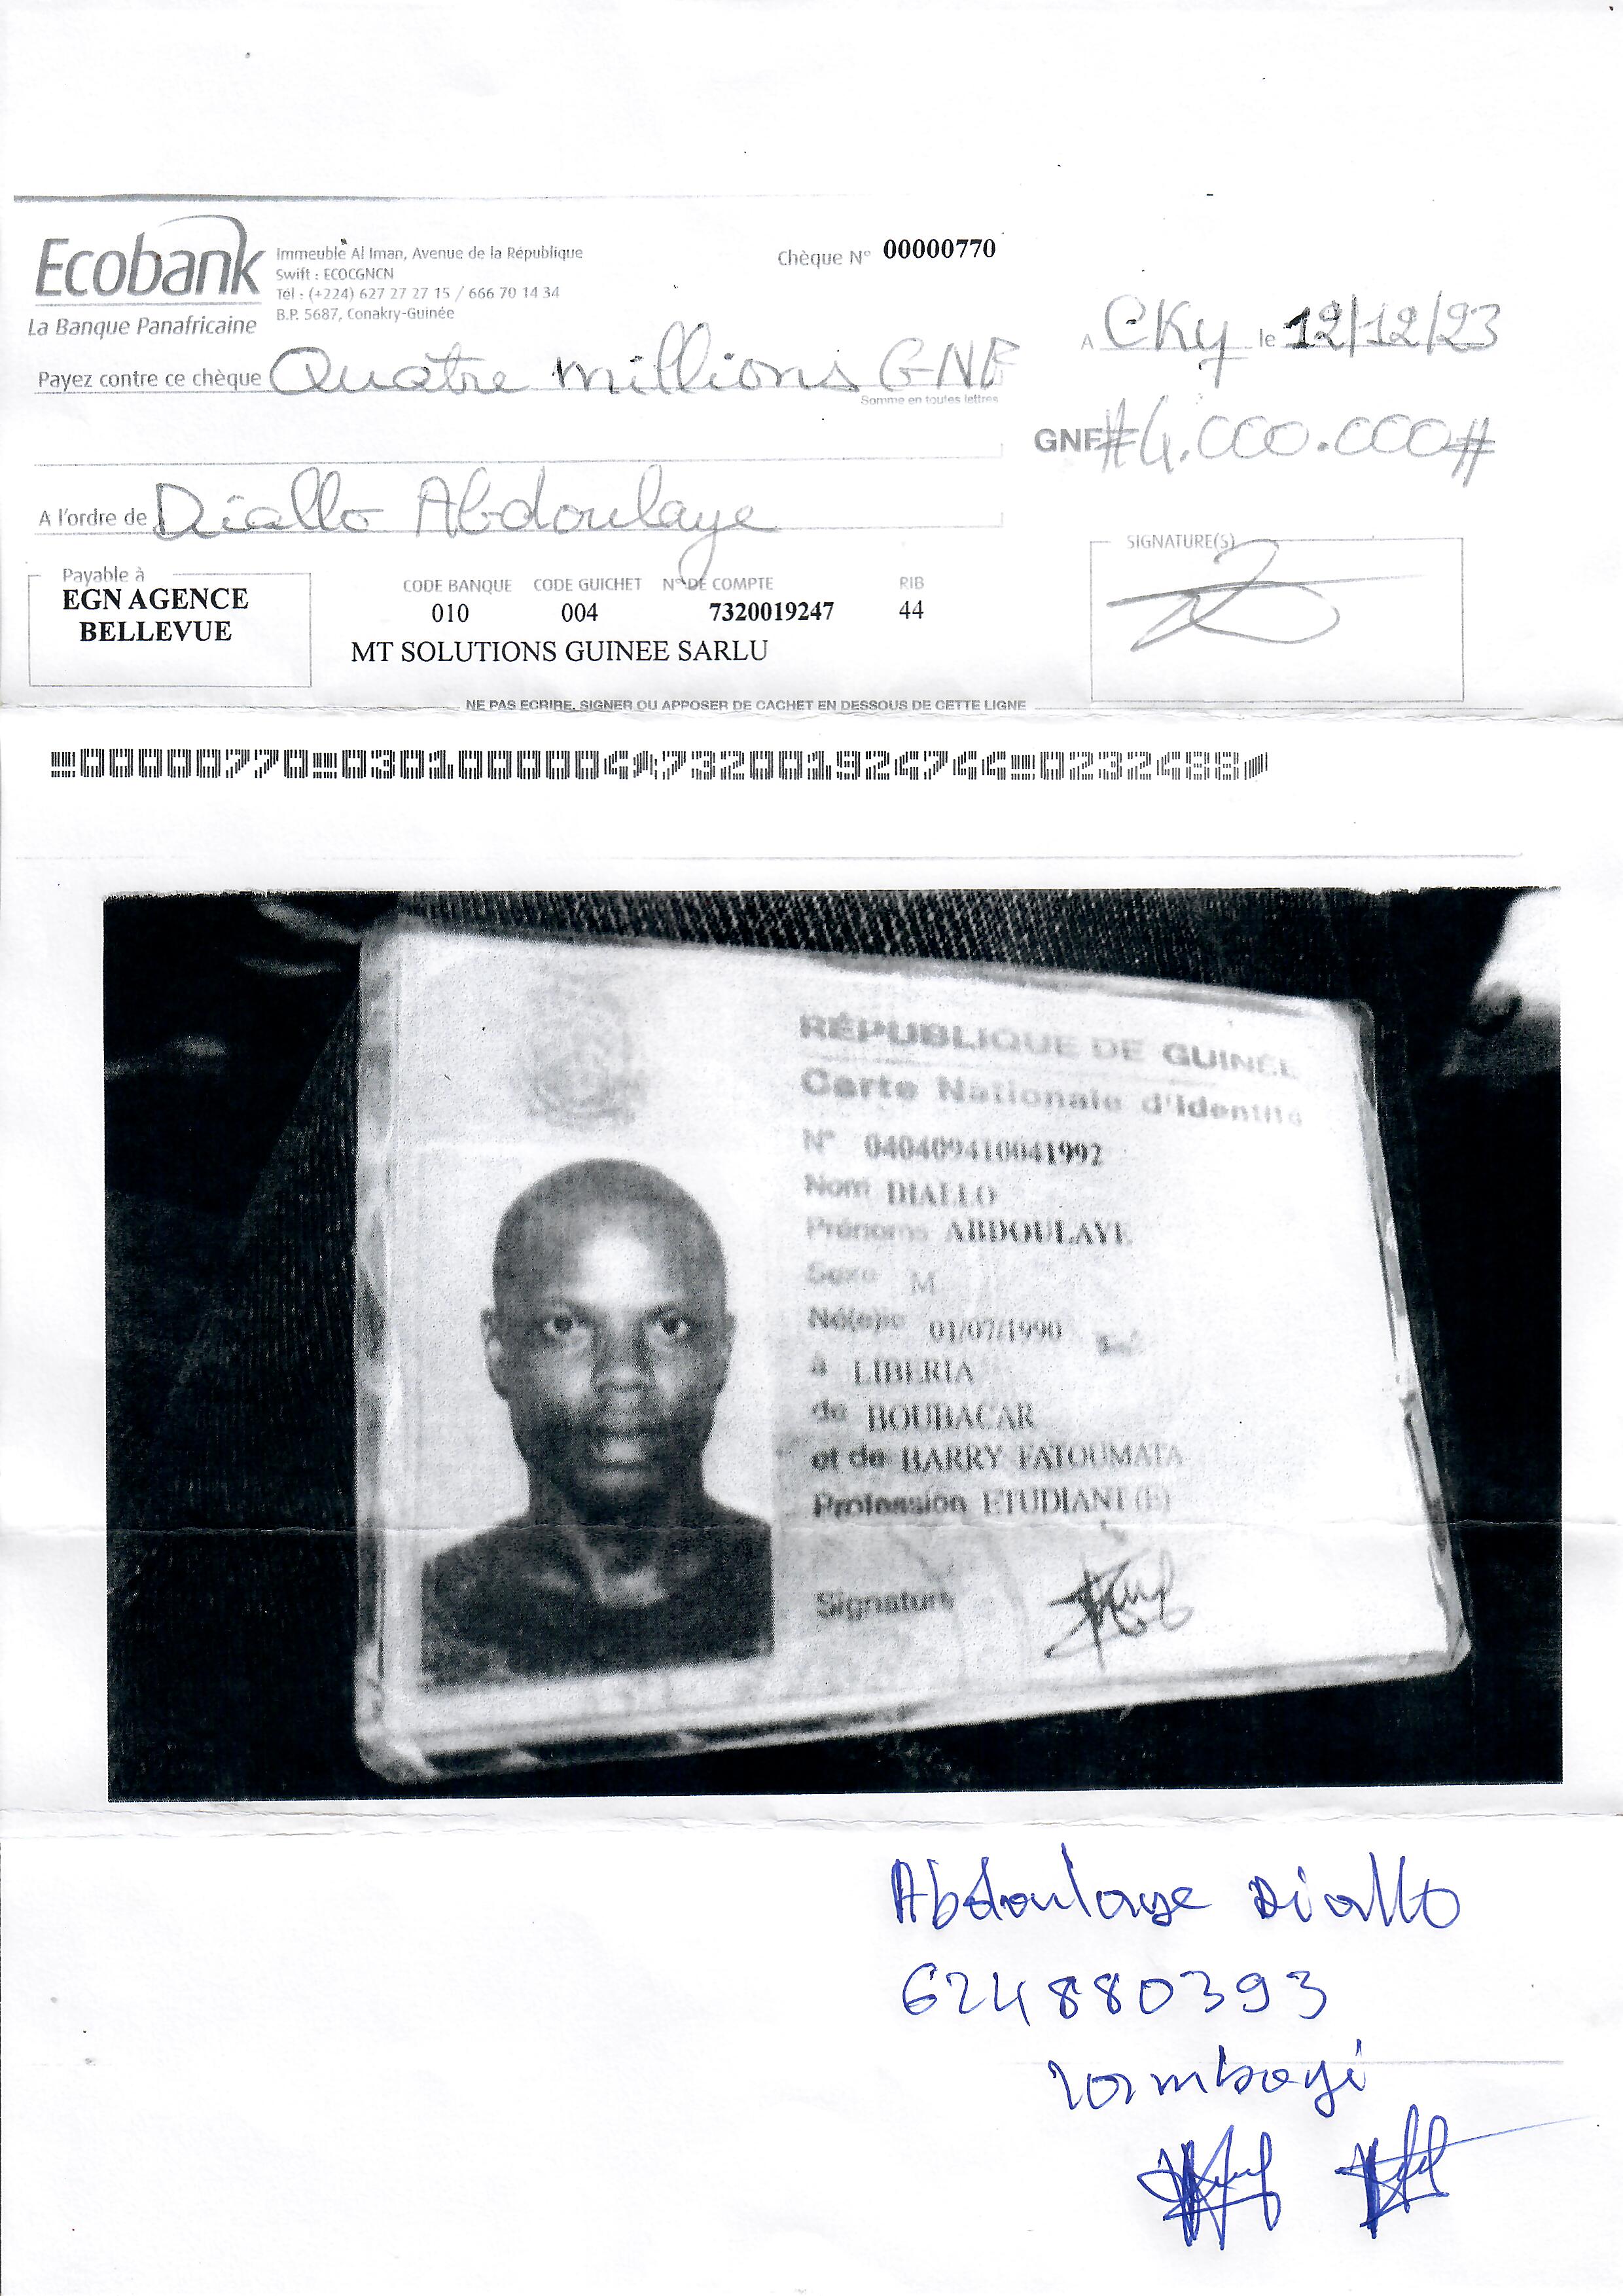 Ecobank
La Banque Panafricaine
Immeuble Al Iman, Avenue de la République
Swift : ECOCGNCN
Tél : (+224) 627 27 27 15 / 666 70 14 34
B.P. 5687, Conakry-Guinée
Chèque N° 00000770
A CKy le 12/12/23
Payez contre ce chèque Quatre millions GNF
Somme en toutes lettres
GNF #4.000.000#
A l'ordre de Diallo Abdoulaye
Payable à
EGN AGENCE
BELLEVUE
CODE BANQUE CODE GUICHET N° DE COMPTE RIB
010 004 7320019247 44
MT SOLUTIONS GUINEE SARLU
SIGNATURE(S)
NE PAS ECRIRE, SIGNER OU APPOSER DE CACHET EN DESSOUS DE CETTE LIGNE
00000770 0301000004 732001924744 0232488
RÉPUBLIQUE DE GUINÉE
Carte Nationale d'Identité
N° 040409410041992
Nom DIALLO
Prénoms ABDOULAYE
Sexe M
Né(e)le 01/07/1990
à LIBERIA
de BOUBACAR
et de BARRY FATOUMATA
Profession ETUDIANT(E)
Signature
Abdoulaye Diallo
624880393